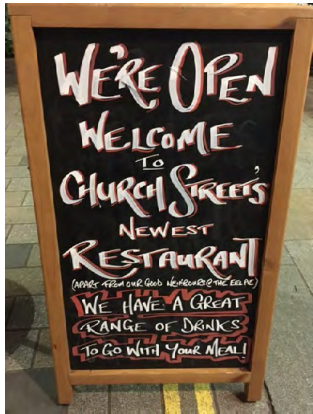 WE'RE OPEN
WELCOME
TO
CHURCH STREET'S
NEWEST
RESTAURANT
(APART FROM OUR GOOD NEIGHBOURS @ THE
WE HAVE A GREAT
RANGE OF DRINKS
TO GO WITH YOUR MEAL!